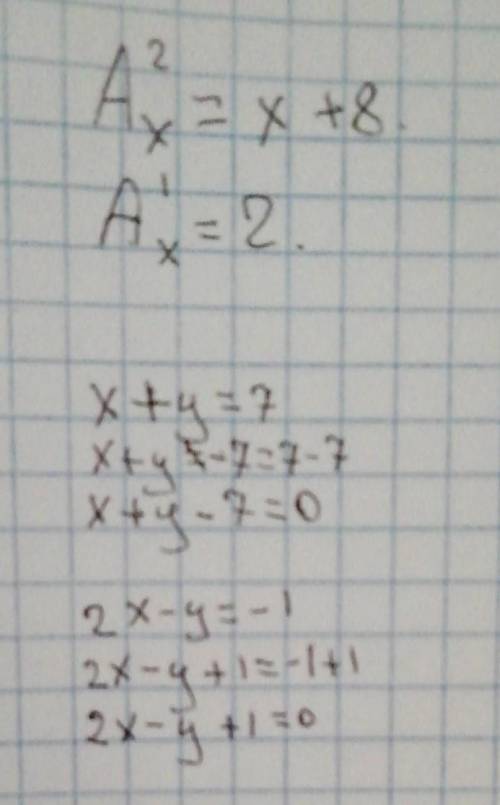 A²ₓ = x + 8.
A¹ₓ = 2.
x + y = 7
x + y - 7 = 7 - 7
x + y - 7 = 0
2x - y = -1
2x - y + 1 = -1 + 1
2x - y + 1 = 0